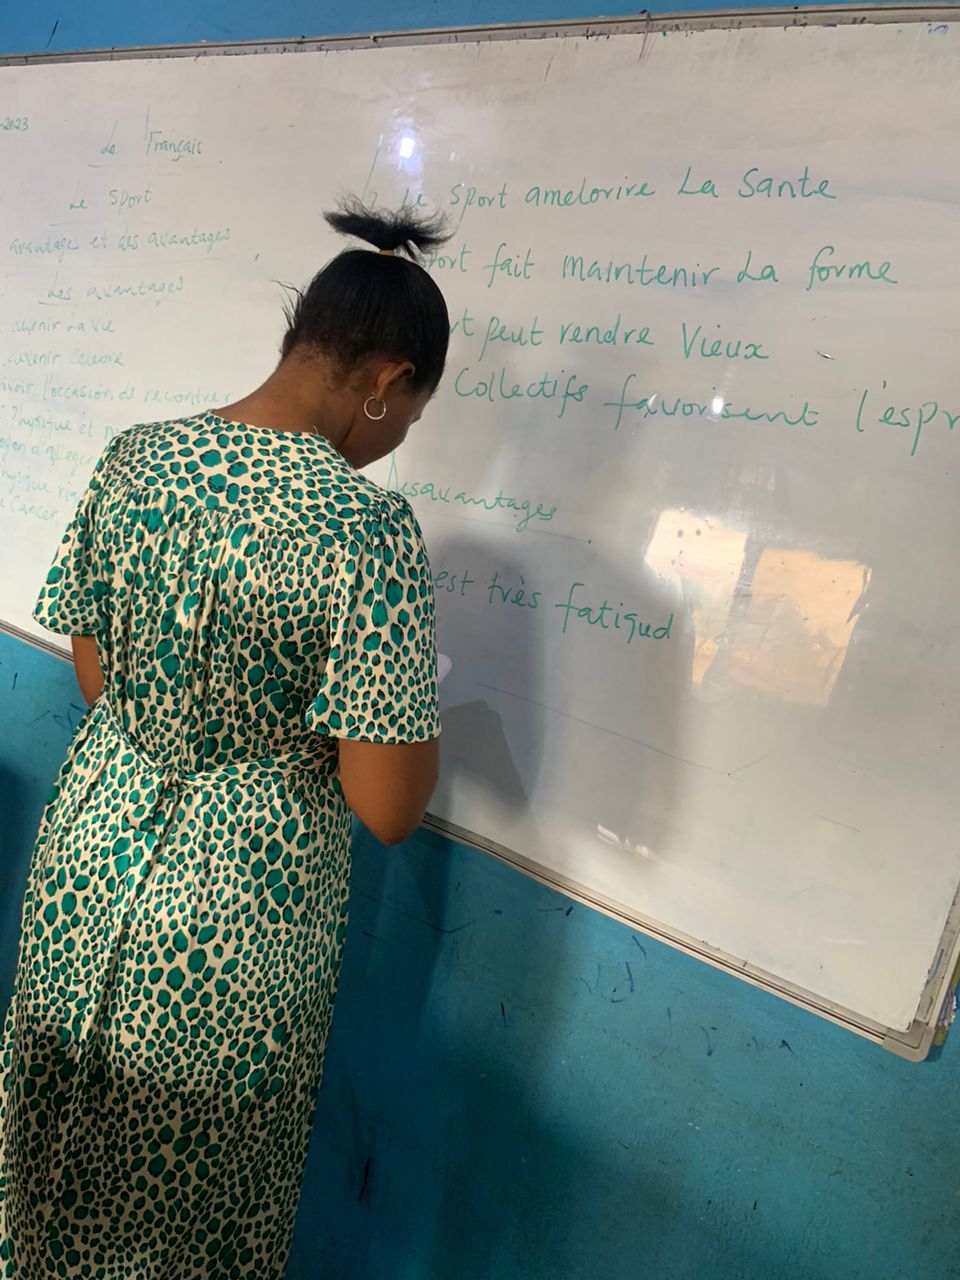 -2023
Le Français
Le Sport
avantages et des avantages
Les avantages
devenir La Vie
devenir
l'occasion de recontrer
Physique et
d'alleger
Physique
Cancer
Le Sport amelorire La Sante
fait maintenir La forme
peut rendre Vieux
Collectifs favorisent l'espr
Desavantages
est très fatigud